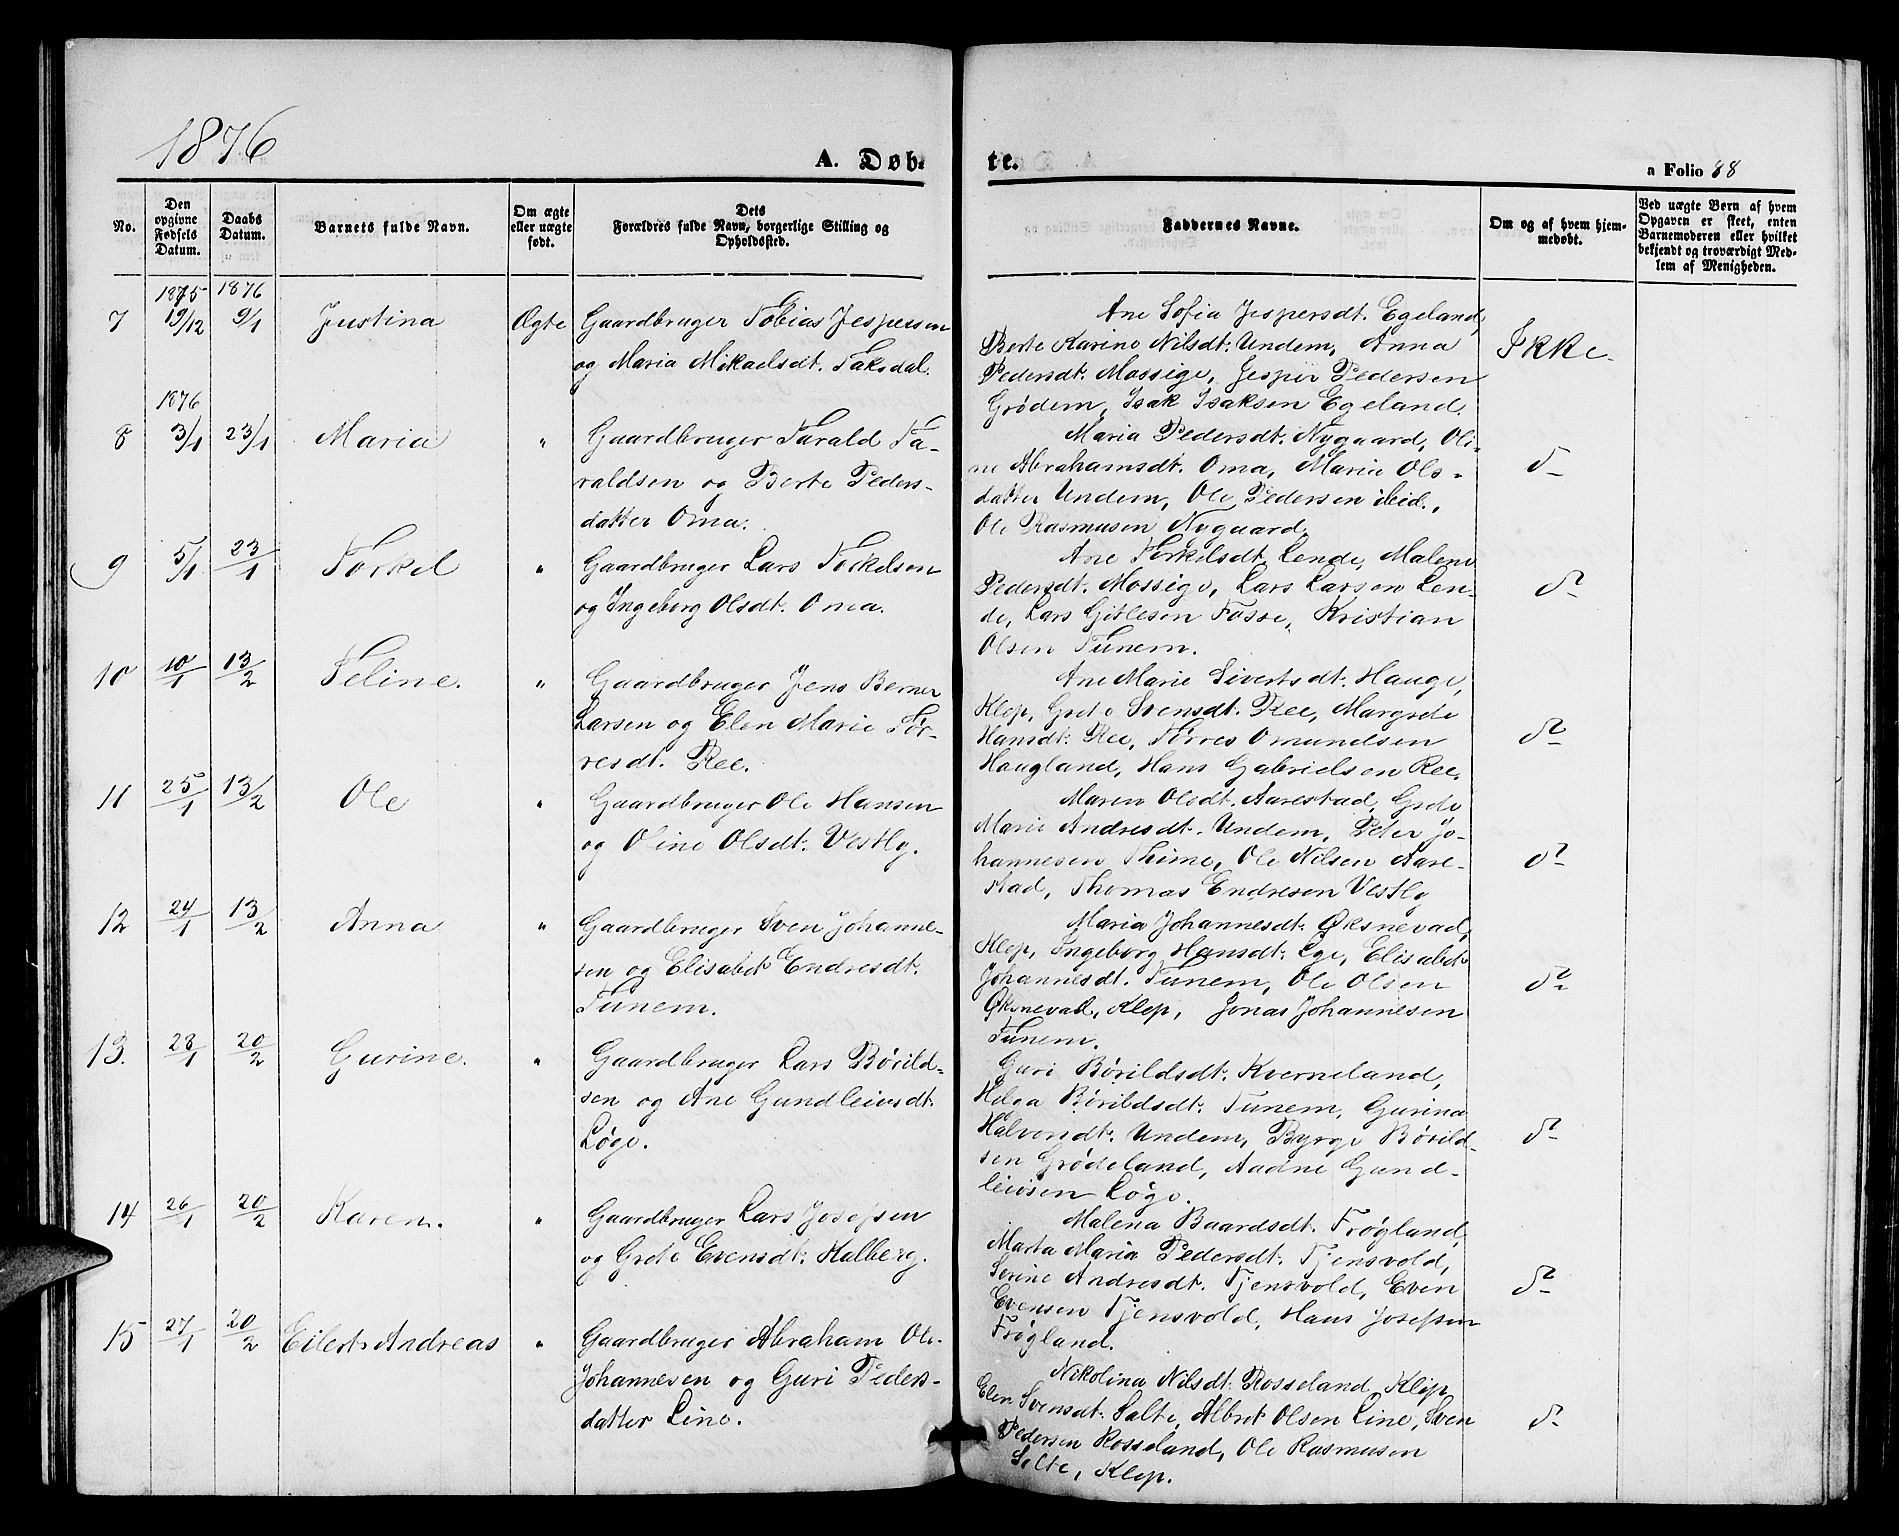 1876
A. Døb-
te.
a Folio 88
No.
Den opgivne Fødsels Datum.
Daabs Datum.
Barnets fulde Navn.
Om ægte eller uægte født.
Dets Forældres fulde Navn, borgerlige Stilling og Opholdssted.
Faddernes Navne.
Om og af hvem hjemmedøbt.
Ved uægte Børn af hvem Opgaven er skeet, enten Barnemoderen eller hvilket bekjendt og troværdigt Medlem af Menigheden.
1875 1876
7 19/12 9/1 Justina Ægte Gaardbruger Tobias Jespersen
og Maria Mikaelsdt. Taksdal.
Ane Sofia Jespersdt. Egeland,
Berte Karine Nilsdt. Undem, Anna
Pedersdt. Mossige, Jesper Pedersen
Grødem, Isak Isaksen Egeland.
Ikke.
1876
8 3/1 23/1 Maria " Gaardbruger Tarald Ta-
raldsen og Berte Peders-
datter Oma.
Maria Pedersdt. Nygaard, Oli-
ne Abrahamsdt. Oma, Marie Ols-
datter Undem, Ole Pedersen ibid.,
Ole Rasmusen Nygaard.
do
9 5/1 23/1 Torkel " Gaardbruger Lars Torkelsen
og Ingeborg Olsdt. Oma.
Ane Torkelsdt. Lende, Malene
Pedersdt. Mossige, Lars Larsen Len-
de, Lars Gitlesen Fosse, Kristian
Olsen Tunem.
do
10 10/1 13/2 Teline. " Gaardbruger Jens Berner
Larsen og Elen Marie Tør-
resdt. Ree.
Ane Marie Sivertsdt. Hauge,
Klep, Grete Svensdt. Ree, Margrete
Hansdt. Ree, Tørres Omundsen
Haugland, Hans Gabrielsen Ree.
do
11 25/1 13/2 Ole " Gaardbruger Ole Hansen
og Oline Olsdt. Vestly.
Maren Olsdt. Aarestad, Grete
Marie Andresdt. Undem, Peter Jo-
hannesen Thime, Ole Nilsen Aare-
stad, Thomas Endresen Vestly
do
12 24/1 13/2 Anna " Gaardbruger Sven Johanne-
sen og Elisabet Endresdt.
Tunem.
Maria Johannesdt. Øksnevad,
Klep, Ingeborg Hansdt. Ege, Elisabet
Johannesdt. Tunem, Ole Olsen
Øksnevad, Klep, Jonas Johannesen
Tunem.
do
13. 28/1 20/2 Gurine. " Gaardbruger Lars Børild-
sen og Ane Gundleivsdt.
Løge.
Guri Børildsdt. Kverneland,
Helga Børildsdt. Tunem, Gurina
Halvorsdt. Undem, Byrge Børild-
sen Grødeland, Aadne Gund-
leivsen Løge.
do
14 26/1 20/2 Karen. " Gaardbruger Lars Josefsen
og Grete Evensdt. Kalberg.
Malena Baardsdt. Frøgland,
Marta Maria Pedersdt. Tjensvold,
Serine Andresdt. Tjensvold, Even
Evensen Tjensvold, Hans Josefsen
Frøgland.
do
15 27/1 20/2 Eilert Andreas " Gaardbruger Abraham Ole
Johannesen og Guri Peders-
datter Line.
Nikolina Nilsdt. Rosseland, Klep,
Elen Svensdt. Salte, Albret Olsen Line, Sven
Pedersen Rosseland, Ole Rasmusen
Salte, Klep.
do